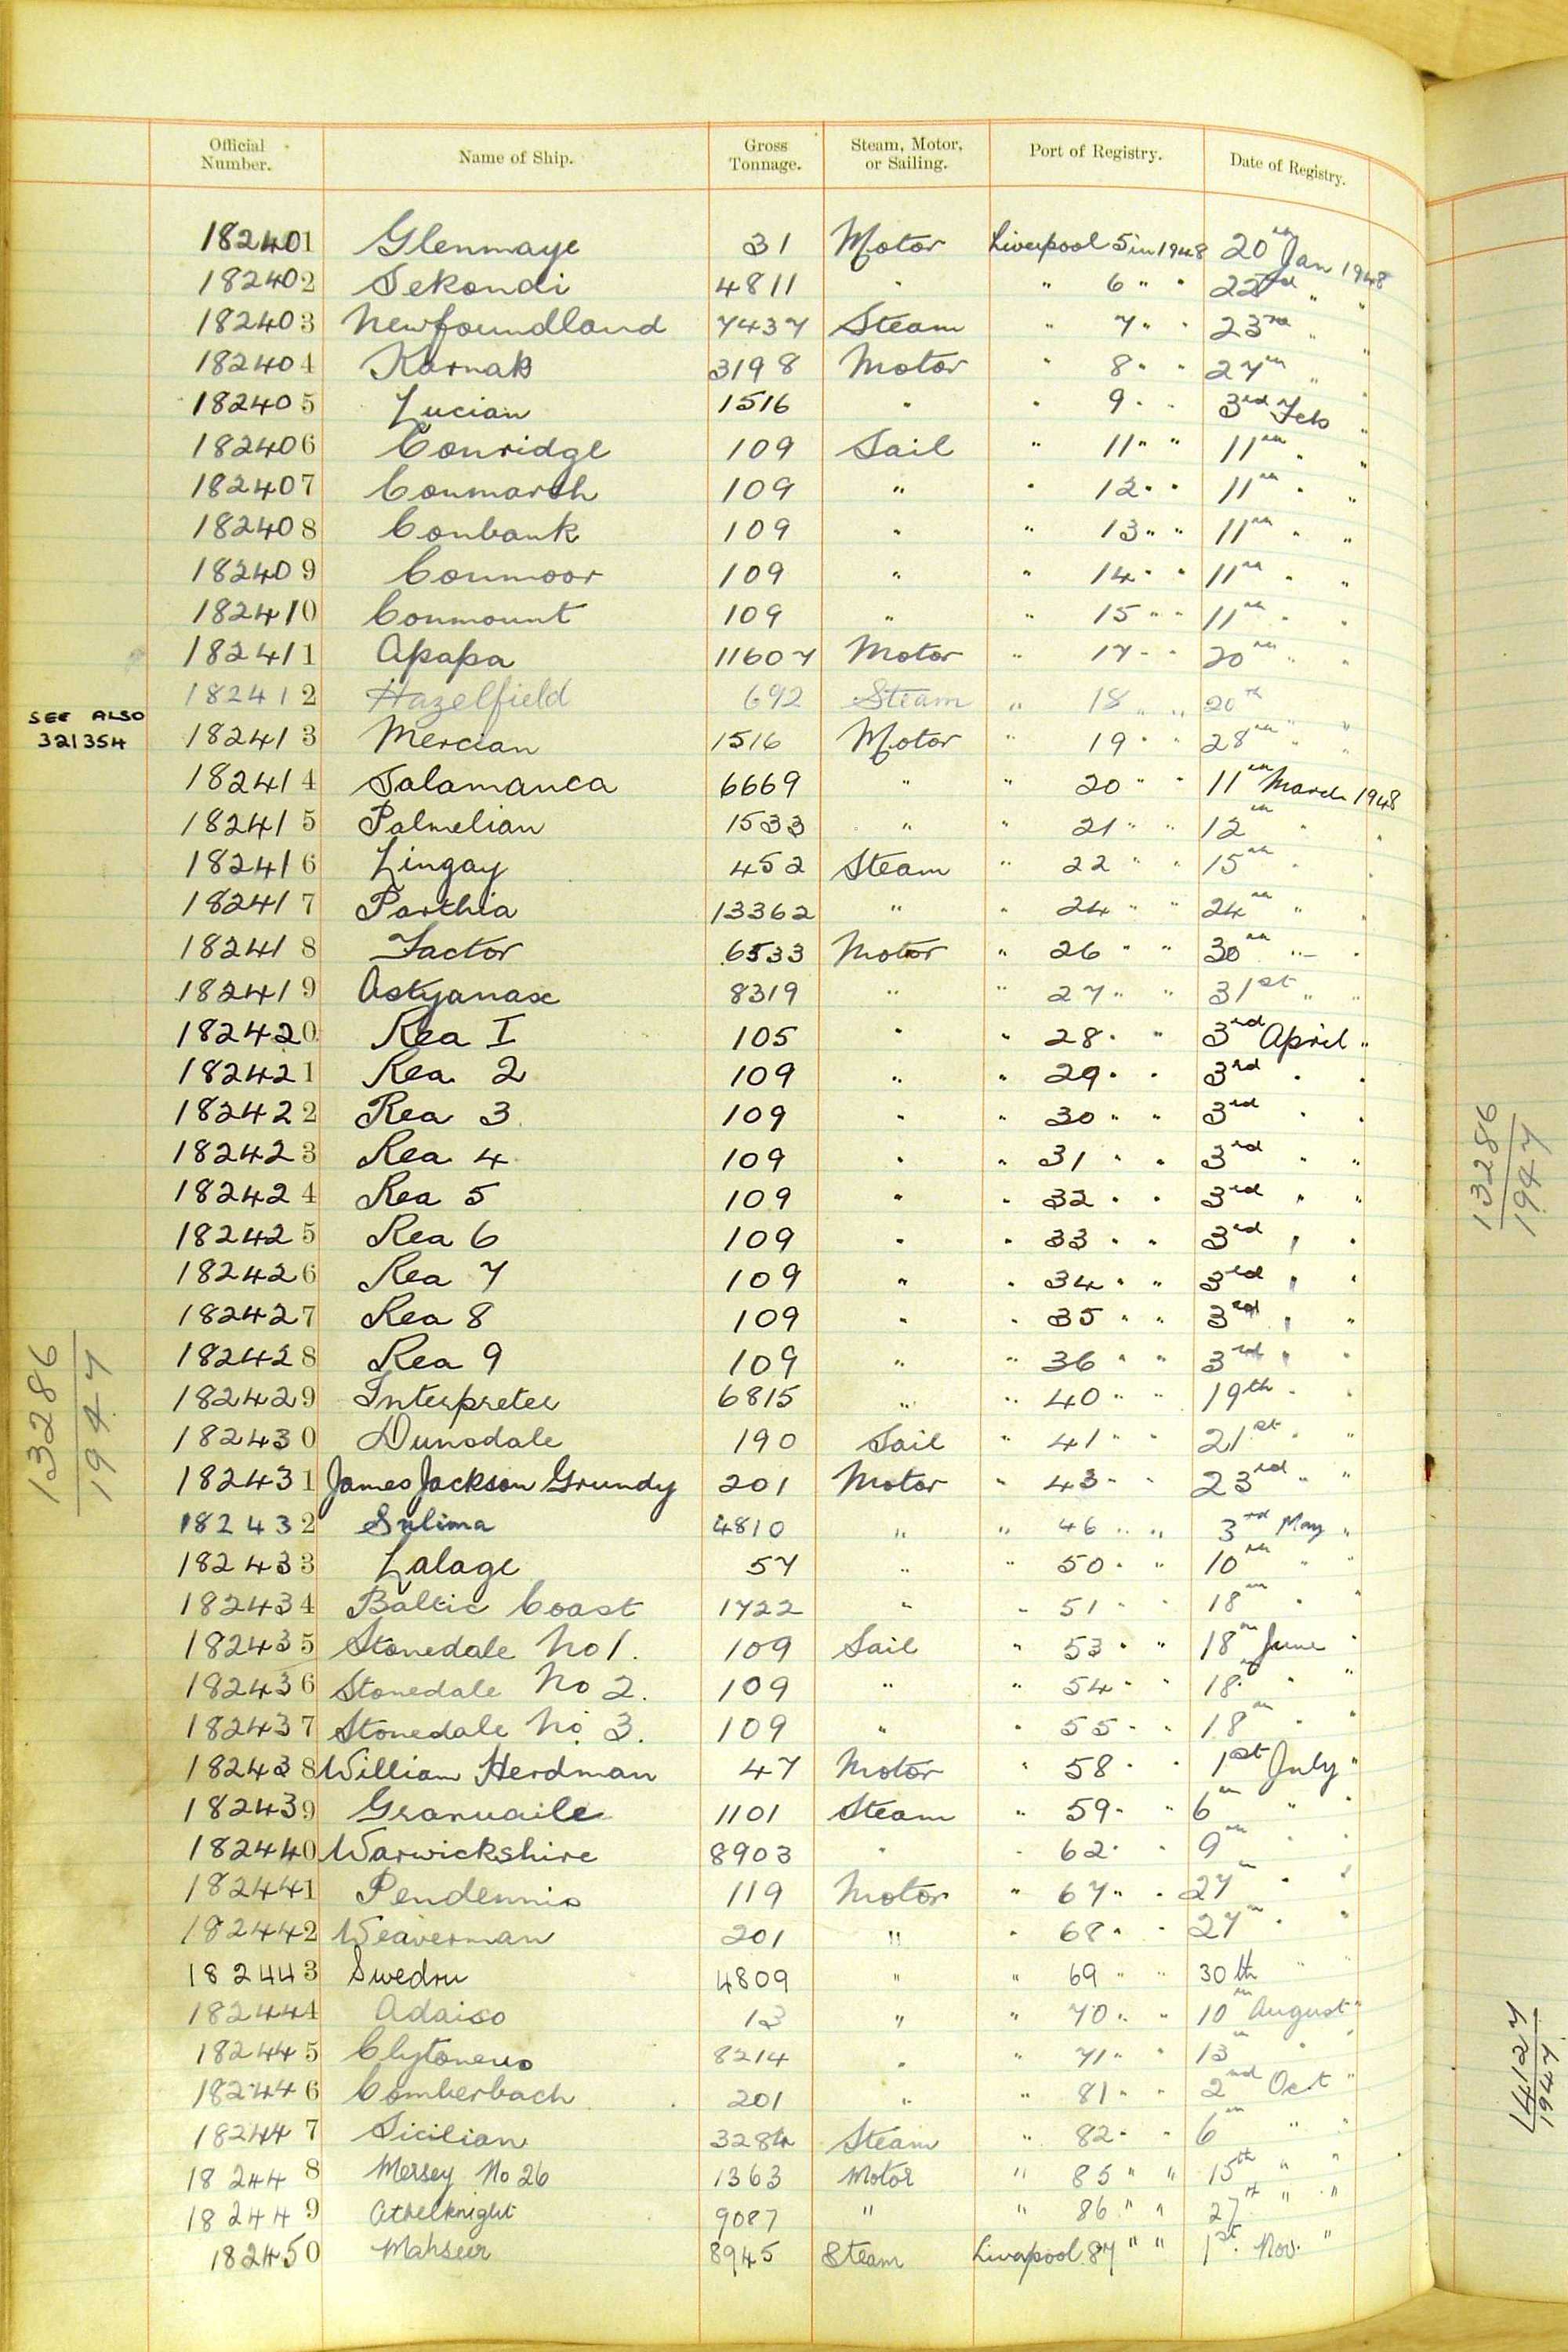 Official Number. Name of Ship. Gross Tonnage. Steam, Motor, or Sailing. Port of Registry. Date of Registry.
182401 Glenmaye 31 Motor Liverpool 5 in 1948 20th Jan 1948
182402 Sekondi 4811 " " 6 " " 22nd " "
182403 Newfoundland 7437 Steam " 7 " " 23rd " "
182404 Karnak 3198 Motor " 8 " " 27th " "
182405 Lucian 1516 " " 9 " " 3rd Feb "
182406 Conridge 109 Sail " 11 " " 11th " "
182407 Conmarch 109 " " 12 " " 11th " "
182408 Conbank 109 " " 13 " " 11th " "
182409 Conmoor 109 " " 14 " " 11th " "
182410 Conmount 109 " " 15 " " 11th " "
182411 Apapa 11607 Motor " 17 " " 20th " "
182412 Hazelfield 692 Steam " 18 " " 20th " "
SEE ALSO 321354
182413 Mercian 1516 Motor " 19 " " 28th " "
182414 Salamanca 6669 " " 20 " " 11th March 1948
182415 Palmelian 1533 " " 21 " " 12th " "
182416 Lingay 452 Steam " 22 " " 15th " "
182417 Parthia 13362 " " 24 " " 24th " "
182418 Factor 6533 Motor " 26 " " 30th " "
182419 Astyanax 8319 " " 27 " " 31st " "
182420 Rea I 105 " " 28 " " 3rd April "
182421 Rea 2 109 " " 29 " " 3rd " "
182422 Rea 3 109 " " 30 " " 3rd " "
182423 Rea 4 109 " " 31 " " 3rd " "
182424 Rea 5 109 " " 32 " " 3rd " "
182425 Rea 6 109 " " 33 " " 3rd " "
182426 Rea 7 109 " " 34 " " 3rd " "
182427 Rea 8 109 " " 35 " " 3rd " "
182428 Rea 9 109 " " 36 " " 3rd " "
182429 Interpreter 6815 " " 40 " " 19th " "
182430 Dunsdale 190 Sail " 41 " " 21st " "
182431 James Jackson Grundy 201 Motor " 43 " " 23rd " "
182432 Sulima 4810 " " 46 " " 3rd May "
182433 Lalage 57 " " 50 " " 10th " "
182434 Baltic Coast 1722 " " 51 " " 18th " "
182435 Stonedale No 1. 109 Sail " 53 " " 18th June "
182436 Stonedale No 2. 109 " " 54 " " 18th " "
182437 Stonedale No 3. 109 " " 55 " " 18th " "
182438 William Herdman 47 Motor " 58 " " 1st July "
182439 Granuaile 1101 Steam " 59 " " 6th " "
182440 Warwickshire 8903 " " 62 " " 9th " "
182441 Pendennis 119 Motor " 67 " " 27th " "
182442 Weaverman 201 " " 68 " " 27th " "
182443 Swedru 4809 " " 69 " " 30th " "
182444 Adaiso 13 " " 70 " " 10th August "
182445 Clytoneus 8214 " " 71 " " 13th " "
182446 Comberbach 201 " " 81 " " 2nd Oct "
182447 Sicilian 3284 Steam " 82 " " 6th " "
182448 Mersey No 26 1363 Motor " 85 " " 15th " "
182449 Athelknight 9087 " " 86 " " 27th " "
182450 Mahseer 8945 Steam Liverpool 87 " " 1st Nov. "
13286
1947
13286
1947
14127
1947